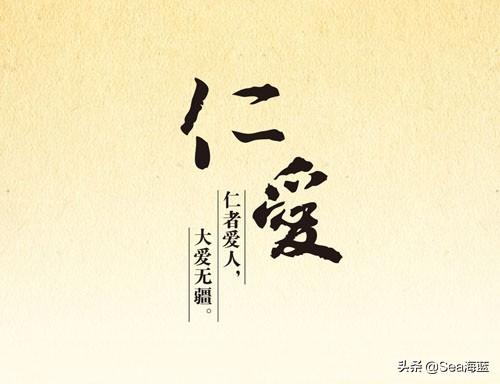 仁爱
仁者爱人，
大爱无疆。
头条 @Sea海蓝